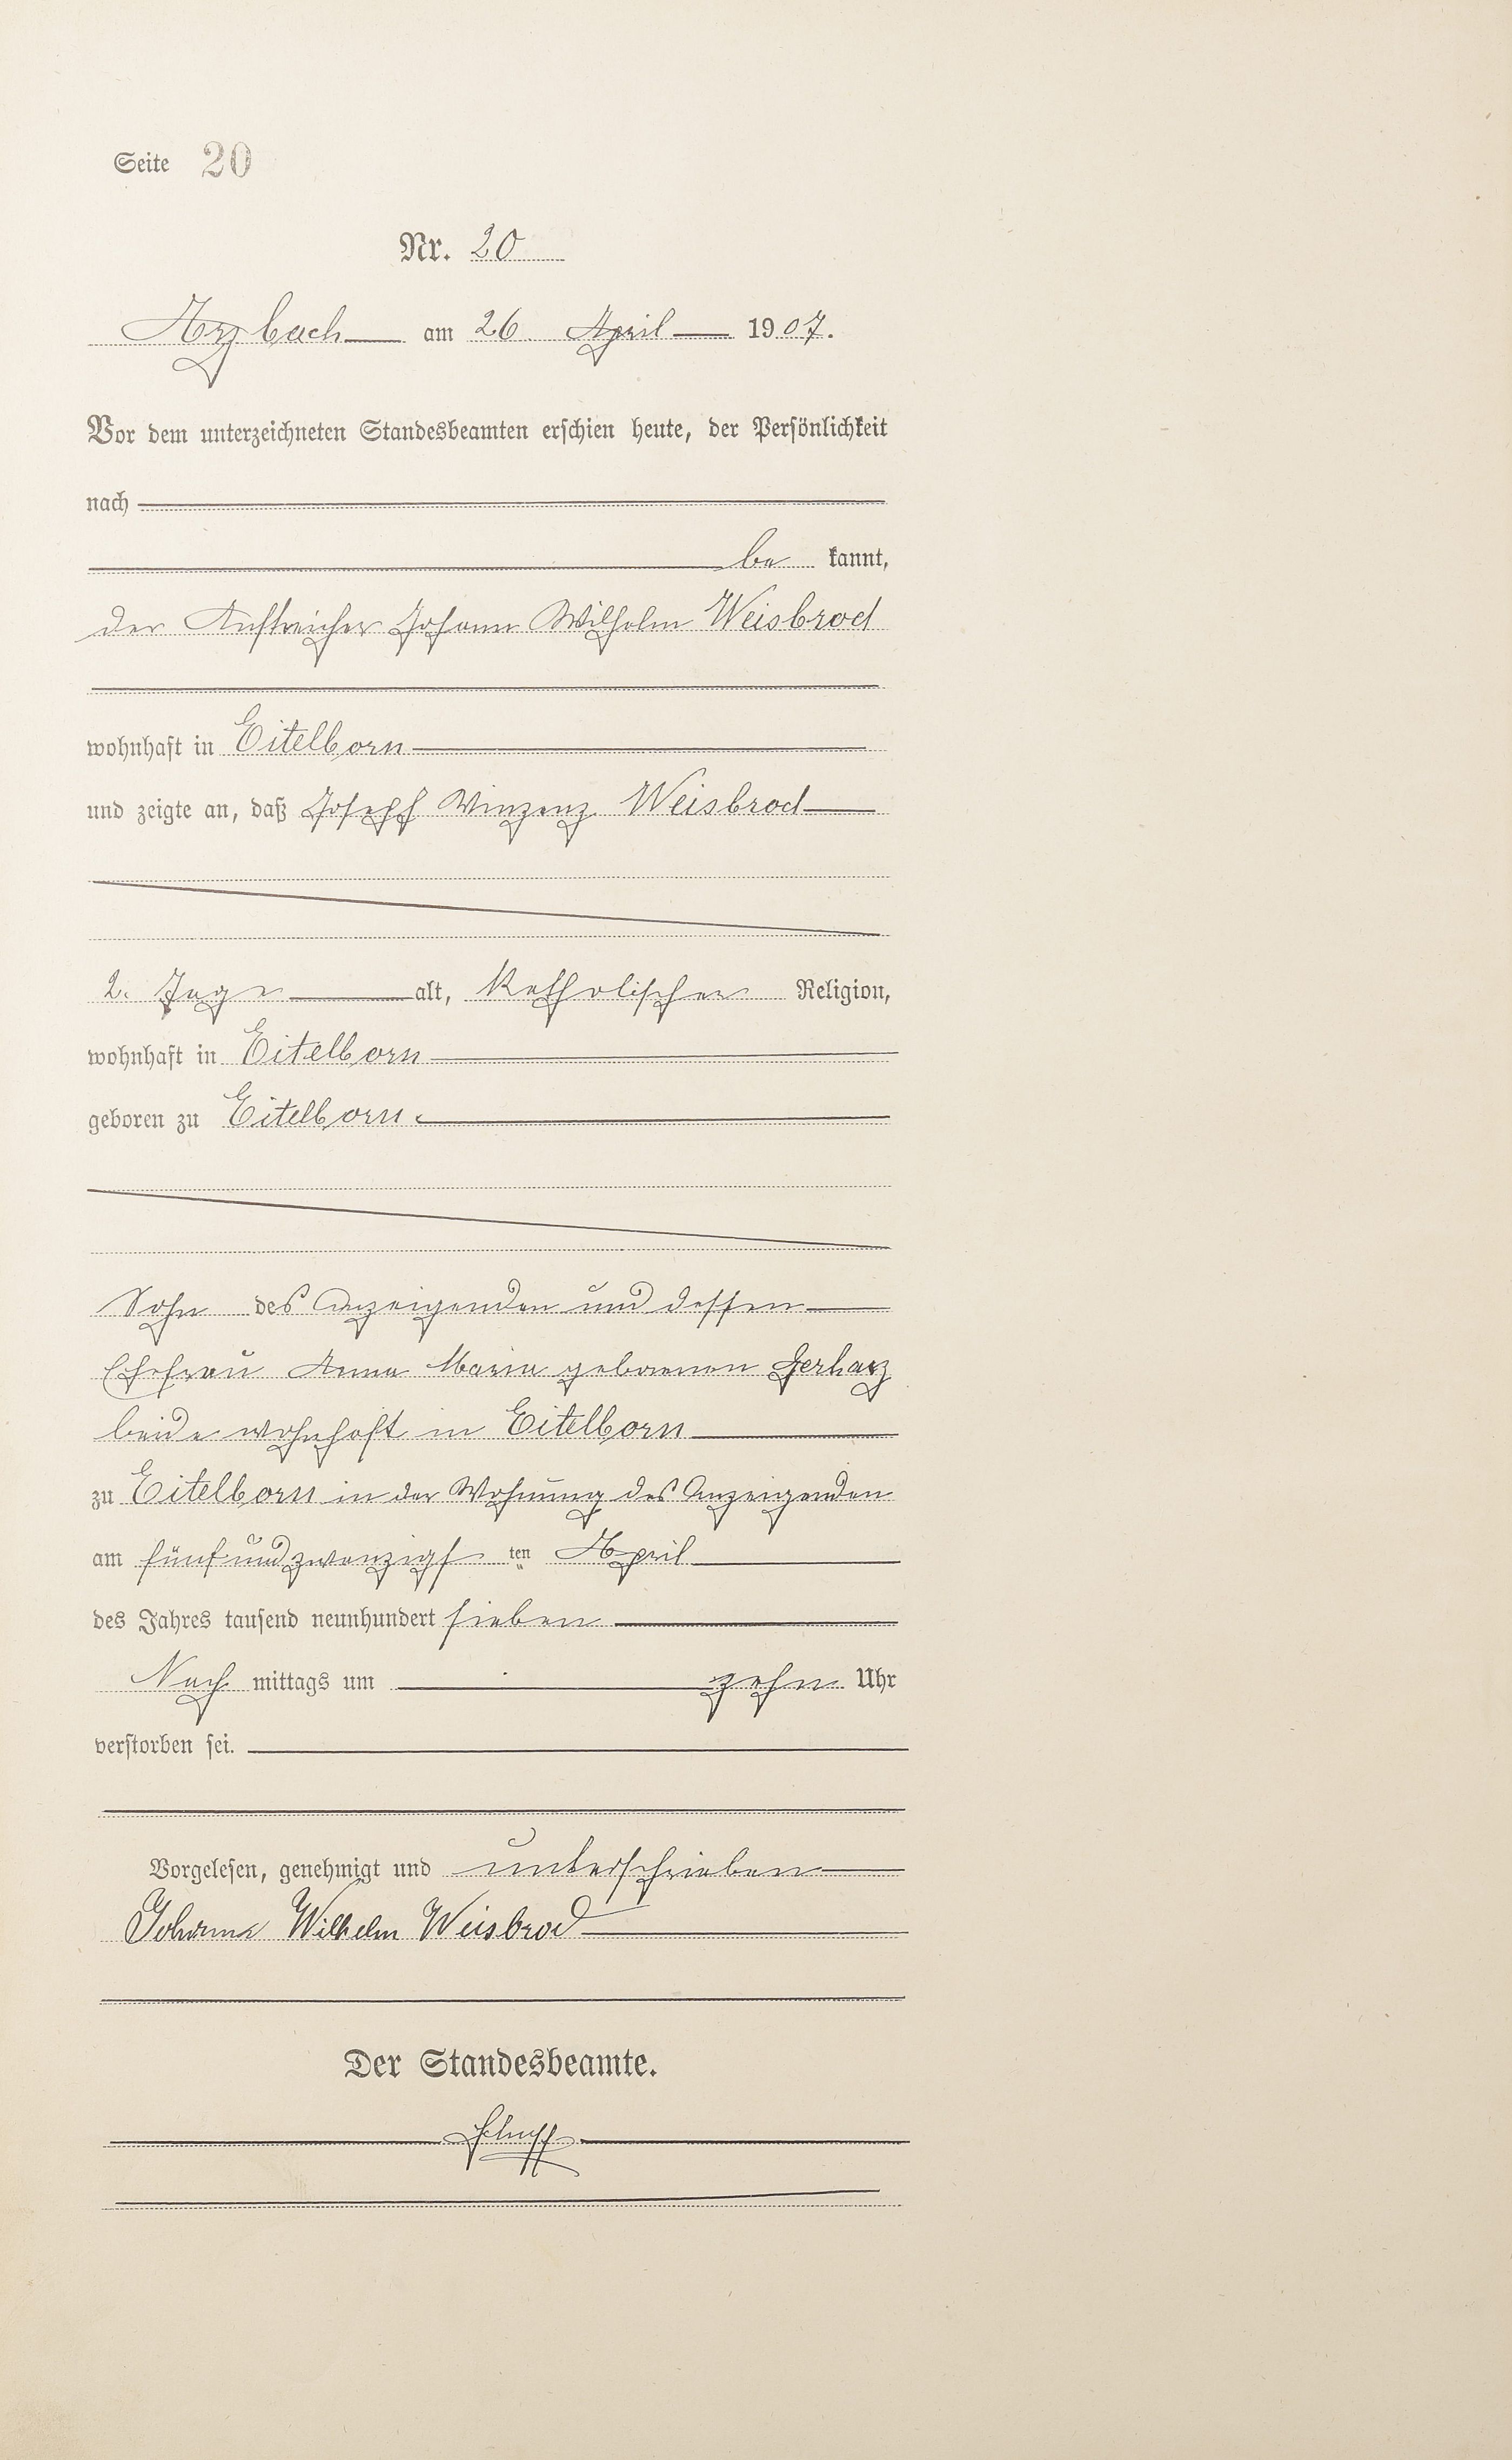 Seite 20
Nr. 20
Arzbach am 26. April 1907.
Vor dem unterzeichneten Standesbeamten erschien heute, der Persönlichkeit
nach
be kannt,
der Anstreicher Johann Wilhelm Weisbrod
wohnhaft in Eitelborn
und zeigte an, daß Joseph Winzenz Weisbrod
2. Tage alt, katholischer Religion,
wohnhaft in Eitelborn
geboren zu Eitelborn.
Sohn des Anzeigenden und dessen
Ehefrau Anna Maria geborenen Gerharz
beide wohnhaft in Eitelborn
zu Eitelborn in der Wohnung des Anzeigenden
am fünfundzwanzigs ten April
des Jahres tausend neunhundert sieben
Nach mittags um zehn Uhr
verstorben sei.
Vorgelesen, genehmigt und unterschrieben
Johann Wilhelm Weisbrod
Der Standesbeamte.